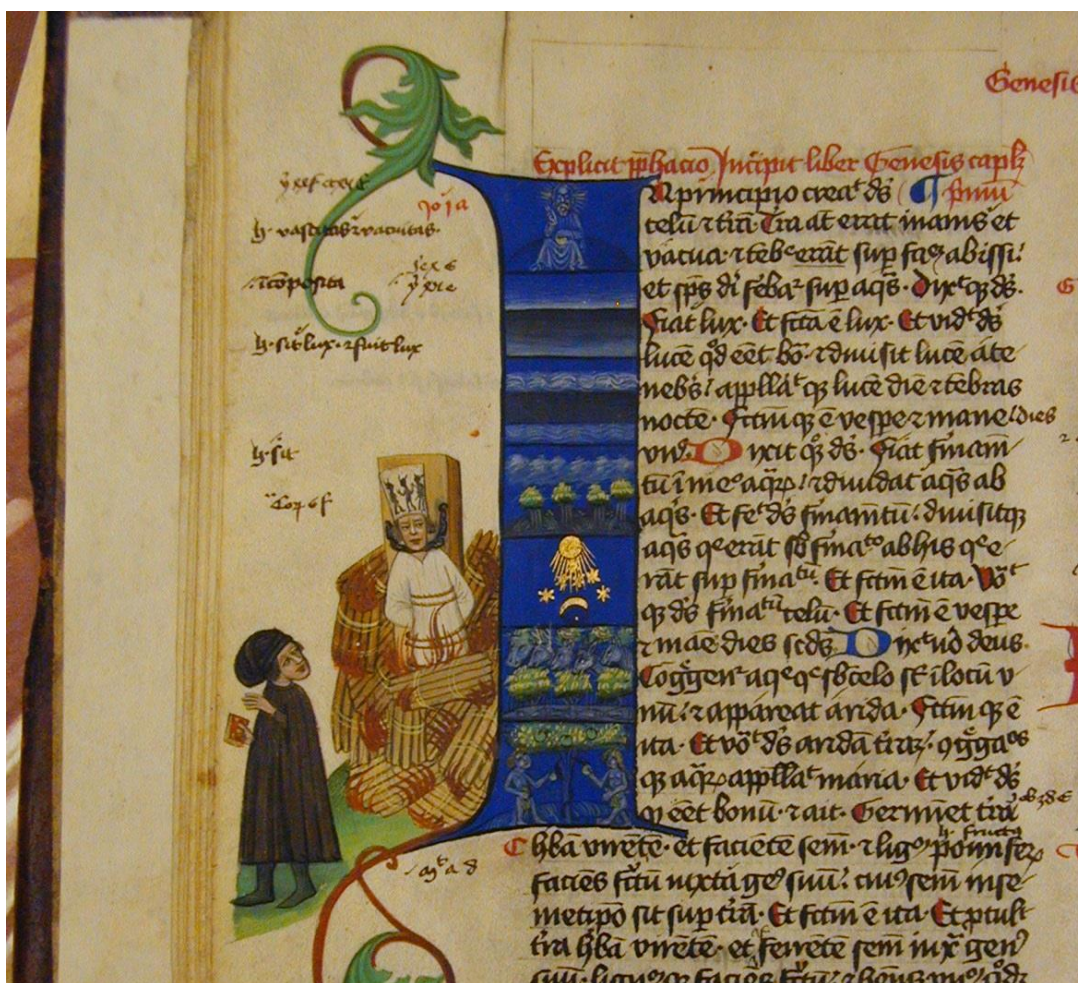 Genesis
Explicit p̄hacio Incipit liber Genesis capl̄
N principio creaᵗ ds̄ ¶ Primū
celū ⁊ trā Tra aūt erat inanis et
vacua ⁊ teb erāt sup faꝫ abissi
et sps̄ di ferebaᵗ sup aqs̄ Dixᵗqꝫ ds̄
Fiat lux Et fctā ē lux Et vidᵗ ds̄
lucē qd̄ eēt bo ⁊ diuisit lucē a te
nebs̄ appllaᵗ qꝫ lucē diē ⁊ tēbras
noctē Fctm qꝫ ē vespe ⁊ mane dies
vn9 Dixit qꝫ ds̄ Fiat firmam
tū ī meo aqꝝ ⁊ diuidat aqs ab
aqs Et feᵗ ds̄ firmamtū diuisitqꝫ
aqs qe erāt sb firmaᵗo ab his qe e
rāt sup firmaᵗū Et fctm ē ita Voᵗ
qꝫ ds̄ firmaᵗū celū Et fctm ē vespe
⁊ mae dies scds̄ Dixᵗ vo deus
Cōgꝫenᵗ aqe qe sb celo st ī locū v
nū ⁊ appareat arida Fctm qꝫ ē
ita Et voᵗ ds̄ aridā trāꝫ ꝯgꝫgaᵒˢ
qꝫ aqꝝ appllaᵗ maria Et vidᵗ ds̄
qꝫ eēt bonū ⁊ ait Germinet trā
hbā virētē et faciētē sem ⁊ lig9 pomifeꝝ
faciēs fctū iuxta ge9 suū cui9 sem in se
metipō sit sup trā Et fctm ē ita Et ptult
tra hbā virētē et ferētē sem iux gen9
h vastitas ⁊ vacuitas
incōposita
h sit lux ⁊ fuit lux
h sit
h fruct9